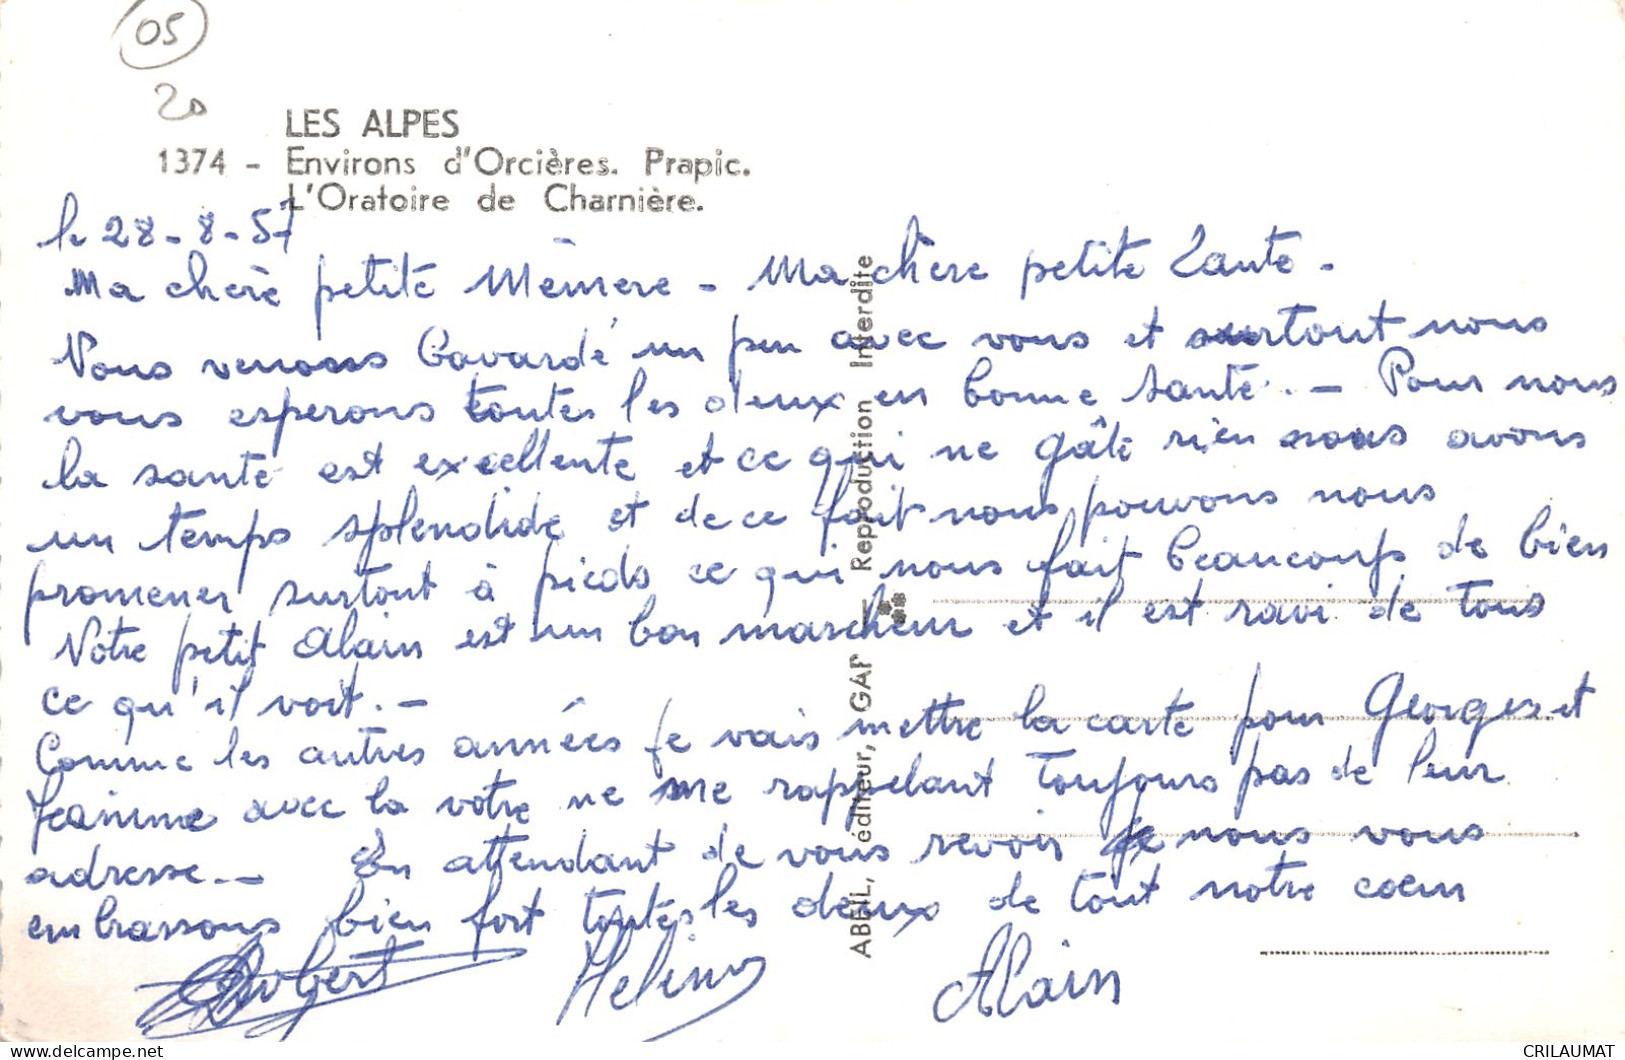 05
20
LES ALPES
1374 - Environs d'Orcières. Prapic.
L'Oratoire de Charnière.
le 28-8-57
Ma chère petite Mémère - Ma chère petite Tante -
Nous venons bavardé un peu avec vous et surtout nous
vous esperons toutes les deux en bonne santé. - Pour nous
la santé est excellente et ce qui ne gâte rien nous avons
un temps splendide et de ce fait nous pouvons nous
promener surtout à pieds ce qui nous fait beaucoup de bien
Votre petit Alain est un bon marcheur et il est ravi de tous
ce qu'il voit. -
Comme les autres années je vais mettre la carte pour Georges et
Jeannine avec la votre ne me rappelant toujours pas de leur
adresse. - En attendant de vous revoir nous vous
embrassons bien fort toutes les deux de tout notre coeur
Robert Heline Alain
ABEIL, éditeur, GAP - Reproduction Interdite
delcampe.net
CRILAUMAT